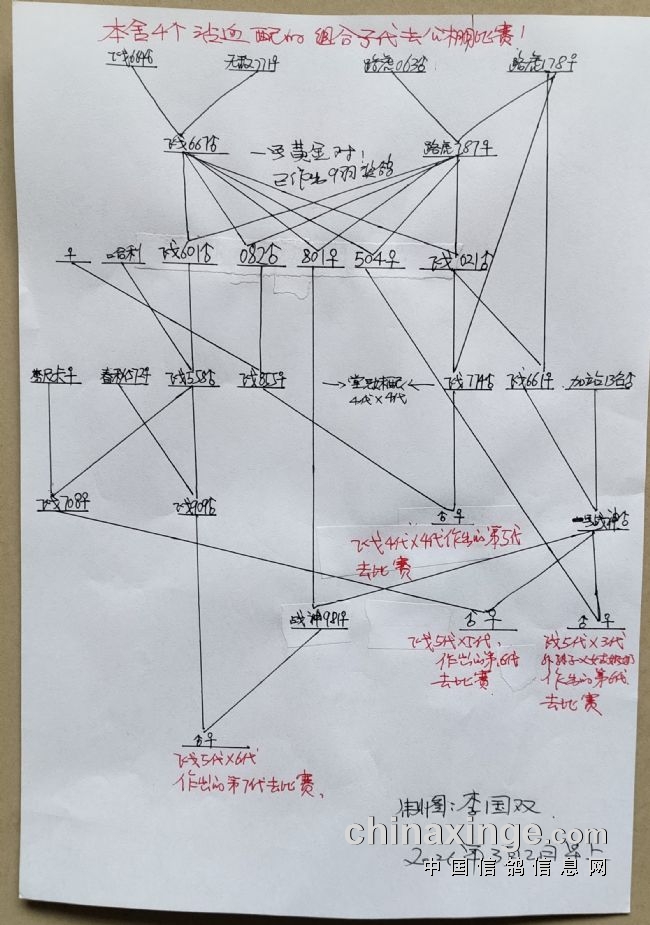 本舍4个沾血配的组合子代去公棚比赛！
飞戈684♂ 无敌771♀ 路虎063♂ 路虎178♀
飞戈667♂ 一号黄金对！ 路虎787♀
已作出9羽
♀ 哈利 飞戈601♂ 082♂ 801♀ 504♀ 飞戈021♂
春秋572♀ 飞戈558♂ 飞戈855♀ 飞戈774♂ 飞戈661♀ 加站13号♂
4代×4代
飞戈708♀ 飞戈909♂ ♂♀ 一号战神♂
飞戈4代×4代作出的第5代
去比赛
战神981♀ ♂♀ ♂♀
飞戈5代×5代 飞戈5代×3代
作出的第6代
去比赛 作出的第6代
去比赛
♂♀
飞戈5代×6代
作出的第7代去比赛
制图：李国双
chinaxinge.com
中国信鸽信息网